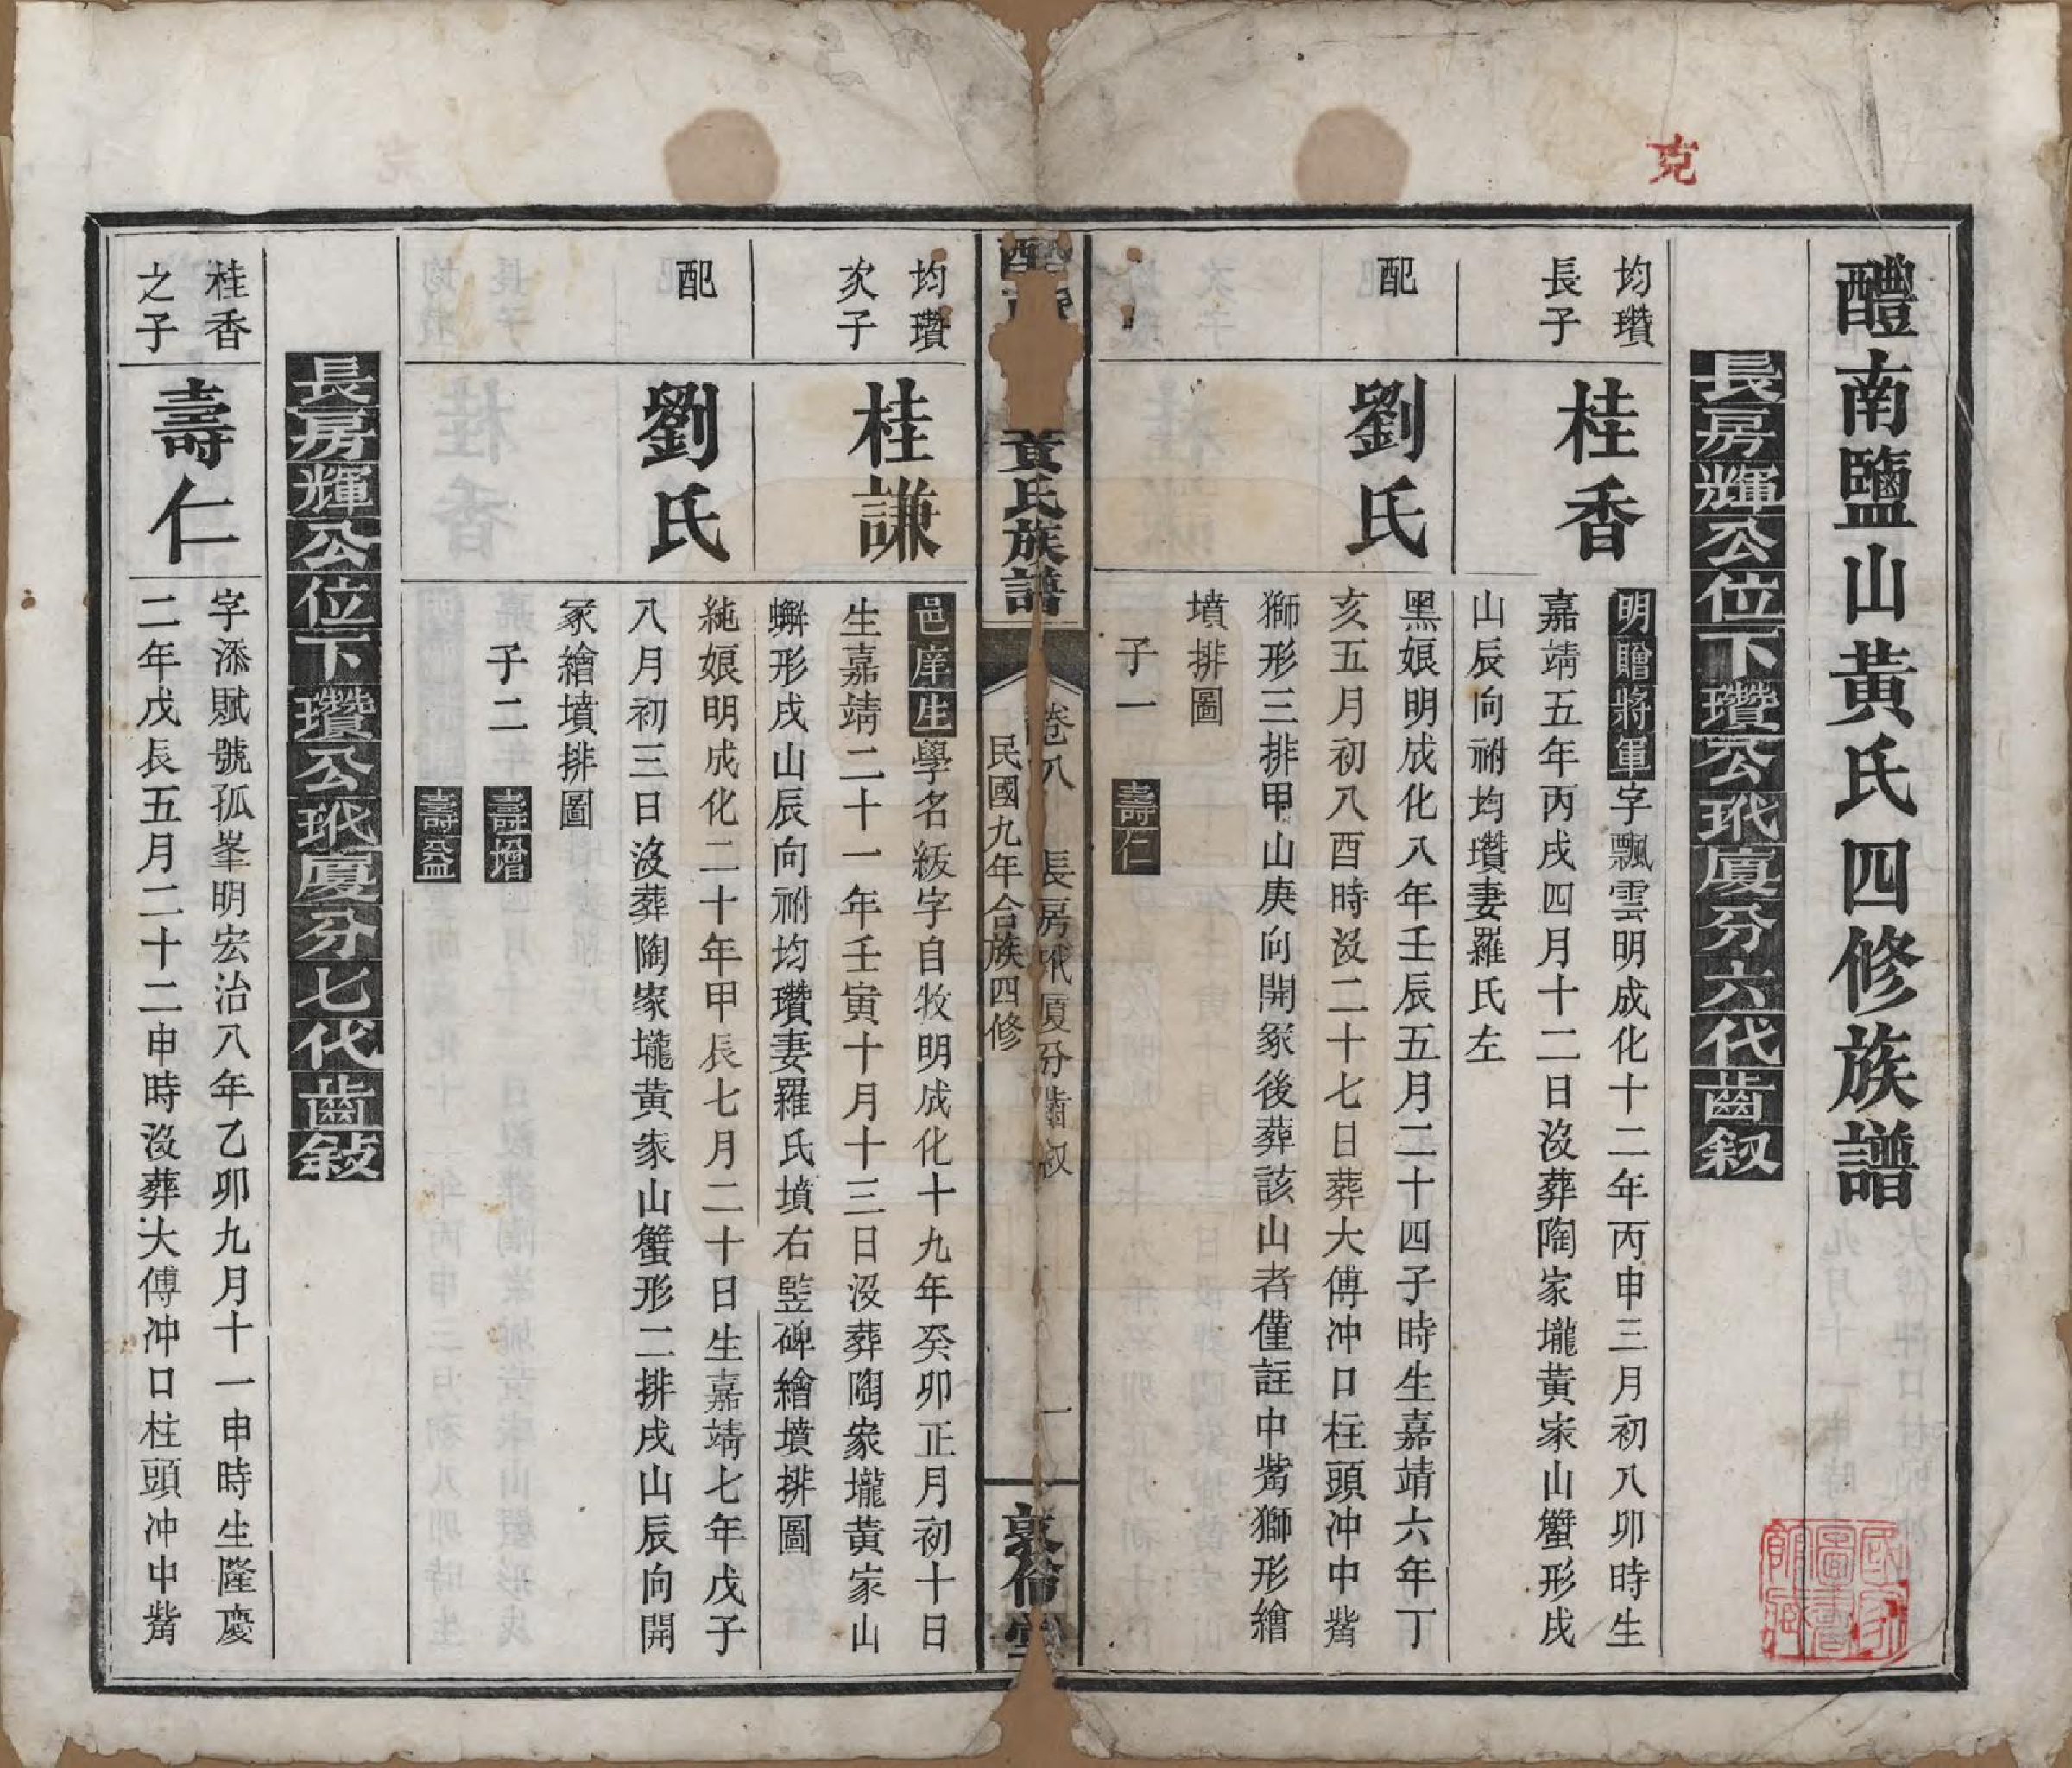 克
醴南鹽山黃氏四修族譜
長房輝公位下瓚公玳廈分六代齒叙
均瓚
長子
桂香
明贈將軍字飄雲明成化十二年丙申三月初八卯時生
嘉靖五年丙戌四月十二日沒葬陶家壠黃家山蟹形戌
山辰向祔均瓚妻羅氏左
配
劉氏
黑娘明成化八年壬辰五月二十四子時生嘉靖六年丁
亥五月初八酉時沒二十七日葬大傅冲口柱頭冲中觜
獅形三排甲山庚向開冢後葬該山者僅註中觜獅形繪
墳排圖
子一 壽仁
黃氏族譜
卷八 長房玳廈分齒叙 一
民國九年合族四修
敦倫堂
均瓚
次子
桂謙
邑庠生學名紱字自牧明成化十九年癸卯正月初十日
生嘉靖二十一年壬寅十月十三日沒葬陶家壠黃家山
蠏形戌山辰向祔均瓚妻羅氏墳右竪碑繪墳排圖
配
劉氏
純娘明成化二十年甲辰七月二十日生嘉靖七年戊子
八月初三日沒葬陶家壠黃家山蟹形二排戌山辰向開
冢繪墳排圖
子二 壽增
壽益
長房輝公位下瓚公玳廈分七代齒敍
桂香
之子
壽仁
字添賦號孤峯明宏治八年乙卯九月十一申時生隆慶
二年戊辰五月二十二申時沒葬大傅冲口柱頭冲中觜